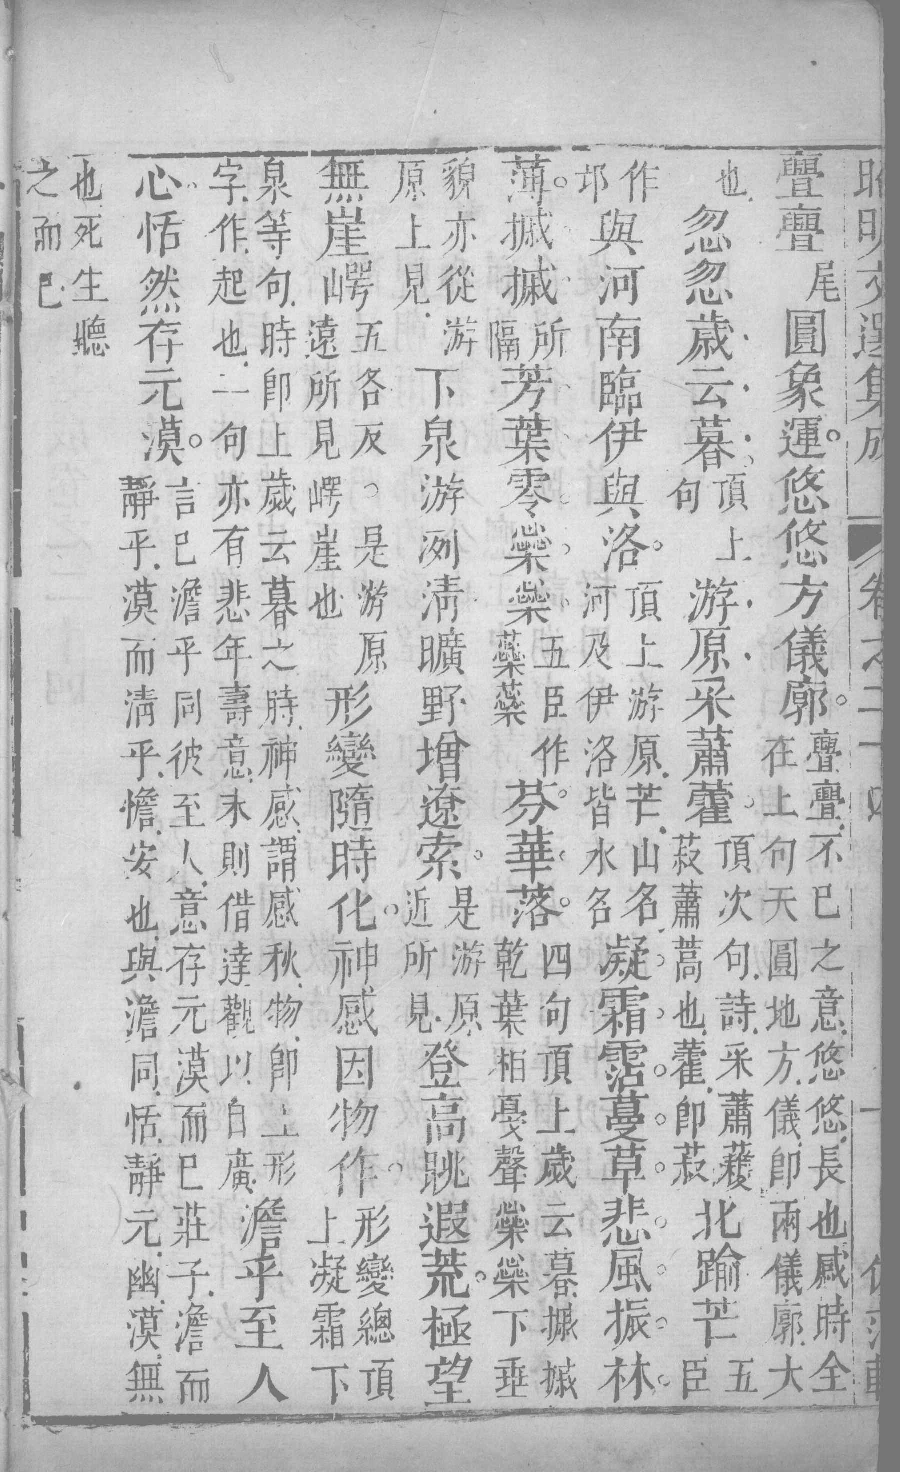 昭明文選集成　卷之二十四　一
亹亹尾圓象運。悠悠方儀廓。亹亹不已之意悠悠長也感時全
在上句天圓地方儀卽兩儀廓大
也忽忽歲云暮。頂上
句游原采蕭藿。頂次句詩采蕭穫
菽蕭蒿也藿卽菽北踰芒五
臣
作
邙與河南臨伊與洛。頂上游原芒山名
河及伊洛皆水名凝霜霑蔓草悲風振林
薄。摵摵所
隔芳葉零橤橤五臣作
蘂蘂芬華落。四句頂上歲云暮摵摵
乾葉相戞聲橤橤下垂
貌亦從游
原上見下泉游洌清曠野增遼索。是游原
近所見登高眺遐荒。極望
無崖崿五各反。是游原
遠所見崿崖也形變隨時化。神感因物作。形變總頂
上凝霜下
泉等句時卽上歲云暮之時神感謂感秋物卽上形
字作起也二句亦有悲年壽意末則借達觀以自廣澹乎至人
心恬然存元漠。言已澹乎同彼至人意存元漠而已莊子澹而
靜乎漠而清乎憺安也與澹同恬靜元幽漠無
也死生聽
之而已